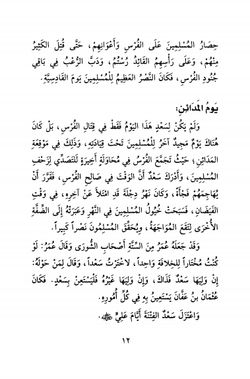 حِصَارُ المُسْلِمِينَ عَلَى الْفُرْسِ وَأَعْوَانِهِمْ، حَتَّى قُتِلَ الْكَثِيرُ
مِنْهُمْ، وَعَلَى رَأْسِهِمُ القَائِدُ رُسْتُمُ، وَدَبَّ الرُّعْبُ فِي بَاقِي
جُنُودِ الْفُرْسِ، فَكَانَ النَّصْرُ العَظِيمُ لِلْمُسْلِمِينَ يَوْمَ القَادِسِيَّةِ.
يَوْمُ المَدَائِنِ:
وَلَمْ يَكُنْ لِسَعْدٍ هَذَا اليَوْمُ فَقَطْ فِي قِتَالِ الفُرْسِ، بَلْ كَانَ
هُنَاكَ يَوْمٌ مَجِيدٌ آخَرُ لِلْمُسْلِمِينَ تَحْتَ قِيَادَتِهِ، وَذَلِكَ فِي مَوْقِعَةِ
المَدَائِنِ، حَيْثُ تَجَمَّعَ الْفُرْسُ فِي مُحَاوَلَةٍ أَخِيرَةٍ لِلتَّصَدِّي لِزَحْفِ
المُسْلِمِينَ، وَأَدْرَكَ سَعْدٌ أَنَّ الْوَقْتَ فِي صَالِحِ الفُرْسِ، فَقَرَّرَ أَنْ
يُهَاجِمَهُمْ فَجْأَةً، وَكَانَ نَهْرُ دِجْلَةَ قَدِ امْتَلَأَ عَنْ آخِرِهِ، فِي وَقْتِ
الفَيَضَانِ، فَسَبَحَتْ خُيُولُ المُسْلِمِينَ فِي النَّهْرِ وَعَبَرَتْهُ إِلَى الضِّفَّةِ
الأُخْرَى لِتَقَعَ المُوَاجَهَةُ، وَيُحَقِّقَ المُسْلِمُونَ نَصْرًا كَبِيرًا.
وَقَدْ جَعَلَهُ عُمَرُ مِنَ السِّتَّةِ أَصْحَابِ الشُّورَى وَقَالَ عُمَرُ: لَوْ
كُنْتُ مُخْتَارًا لِلْخِلَافَةِ وَاحِدًا، لَاخْتَرْتُ سَعْدًا، وَقَالَ لِمَنْ حَوْلَهُ:
إِنْ وَلِيَهَا سَعْدٌ فَذَاكَ، وَإِنْ وَلِيَهَا غَيْرُهُ فَلْيَسْتَعِنْ بِسَعْدٍ. فَكَانَ
عُثْمَانُ بْنُ عَفَّانَ يَسْتَعِينُ بِهِ فِي كُلِّ أُمُورِهِ.
وَاعْتَزَلَ سَعْدٌ الفِتْنَةَ أَيَّامَ عَلِيٍّ
١٢